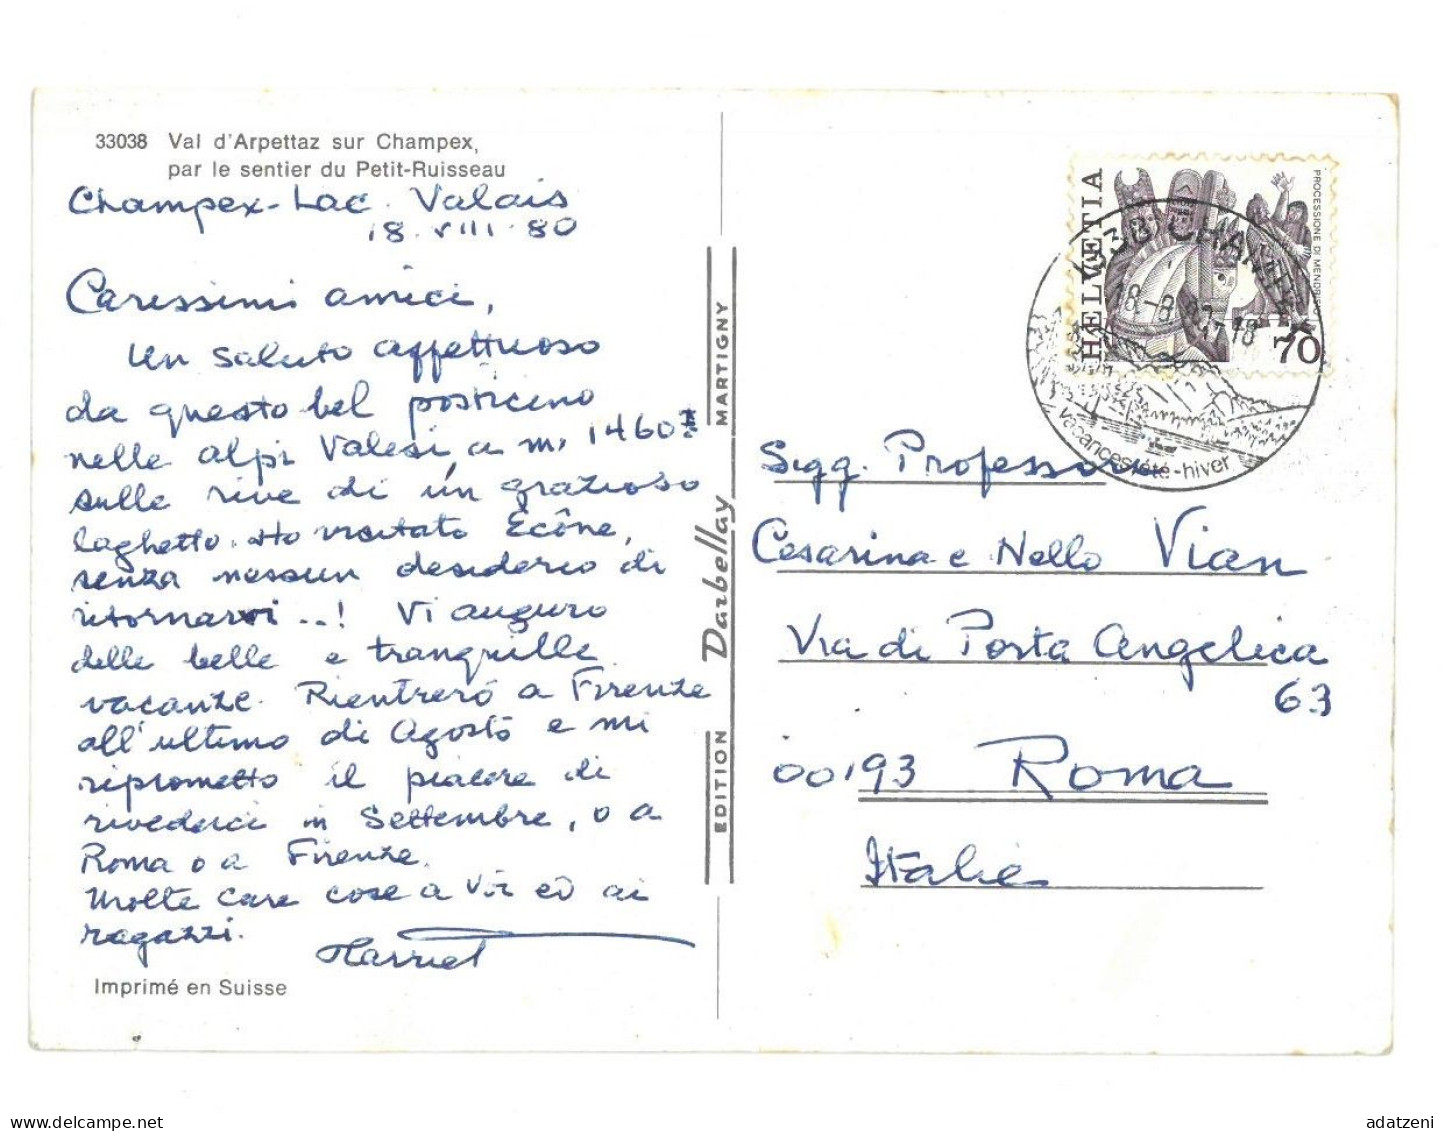 33038 Val d'Arpettaz sur Champex,
par le sentier du Petit-Ruisseau
Champex-Lac. Valais
18. VIII. 80
Carissimi amici,
un saluto affettuoso
da questo bel posticino
nelle alpi Valesi a m. 1460
sulle rive di un grazioso
laghetto. Ho visitato Ecône,
senza nessun desiderio di
ritornarvi...! Vi auguro
delle belle e tranquille
vacanze. Rientrerò a Firenze
all'ultimo di Agosto e mi
riprometto il piacere di
rivederci in Settembre, o a
Roma o a Firenze.
Molte care cose a Voi ed ai
ragazzi.
Harriet
Imprimé en Suisse
EDITION Darbellay MARTIGNY
HELVETIA
PROCESSIONE DI MENDRISIO
70
1938 CHAMPEX
18-8.80-18
vacances été-hiver
Sigg. Professori
Cesarina e Nello Vian
Via di Porta Angelica
63
00193 Roma
Italie
delcampe.net
adatzeni